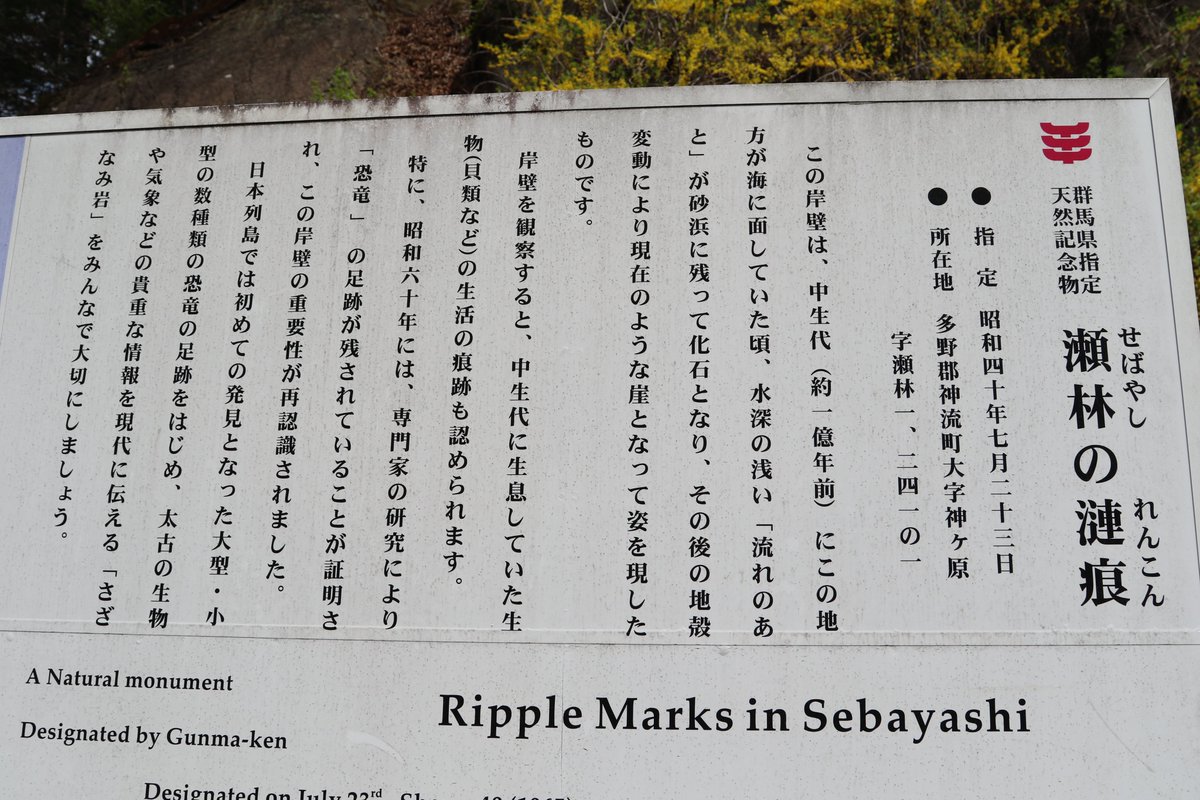 群馬県指定
天然記念物
せばやし れんこん
瀬林の漣痕
● 指 定 昭和四十年七月二十三日
● 所在地 多野郡神流町大字神ヶ原
字瀬林一、二四一の一
この岸壁は、中生代(約一億年前)にこの地
方が海に面していた頃、水深の浅い「流れのあ
と」が砂浜に残って化石となり、その後の地殻
変動により現在のような崖となって姿を現した
ものです。
岸壁を観察すると、中生代に生息していた生
物(貝類など)の生活の痕跡も認められます。
特に、昭和六十年には、専門家の研究により
「恐竜」の足跡が残されていることが証明さ
れ、この岸壁の重要性が再認識されました。
日本列島では初めての発見となった大型・小
型の数種類の恐竜の足跡をはじめ、太古の生物
や気象などの貴重な情報を現代に伝える「さざ
なみ岩」をみんなで大切にしましょう。
A Natural monument
Designated by Gunma-ken
Ripple Marks in Sebayashi
Designated on July 23rd